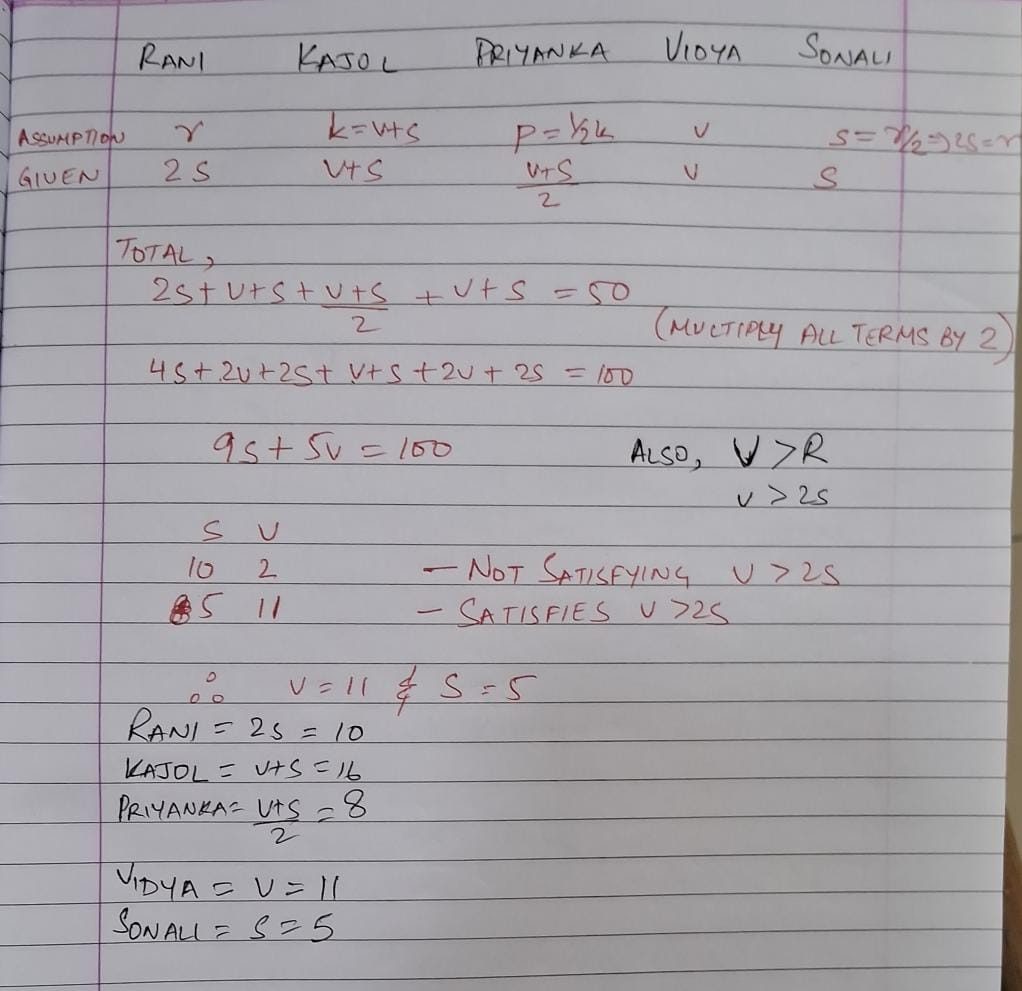 RANI KAJOL PRIYANKA VIDYA SONALI
ASSUMPTION r k=v+s p=1/2k v s=r/2=>2s=r
GIVEN 2S V+S (V+S)/2 V S
TOTAL,
2s+v+s+(v+s)/2+v+s=50
(MULTIPLY ALL TERMS BY 2)
4s+2v+2s+v+s+2v+2s=100
9s+5v=100 ALSO, V>R
v>2s
S V
10 2 - NOT SATISFYING V>2S
5 11 - SATISFIES V>2S
∴ V=11 & S=5
RANI=2s=10
KAJOL=v+s=16
PRIYANKA=(v+s)/2=8
VIDYA=V=11
SONALI=S=5